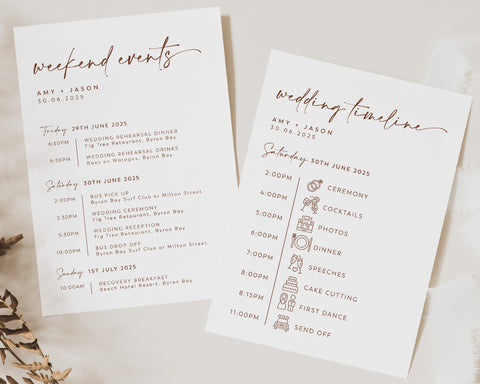 weekend events
AMY + JASON
30.06.2025
Friday 29TH JUNE 2025
6:30PM WEDDING REHEARSAL DINNER
Fig Tree Restaurant, Byron Bay
9:30PM WEDDING REHEARSAL DRINKS
Raes on Wategos, Byron Bay
Saturday 30TH JUNE 2025
2:00PM BUS PICK UP
Byron Bay Surf Club or Milton Street
2:30PM WEDDING CEREMONY
Fig Tree Restaurant, Byron Bay
5:30PM WEDDING RECEPTION
Fig Tree Restaurant, Byron Bay
10:00PM BUS DROP OFF
Byron Bay Surf Club or Milton Street
Sunday 1ST JULY 2025
10:00AM RECOVERY BREAKFAST
Beach Hotel Resort, Byron Bay
wedding timeline
AMY + JASON
30.06.2025
Saturday 30TH JUNE 2025
2:00PM CEREMONY
4:00PM COCKTAILS
5:00PM PHOTOS
6:00PM DINNER
7:00PM SPEECHES
8:00PM CAKE CUTTING
8:15PM FIRST DANCE
11:00PM SEND OFF